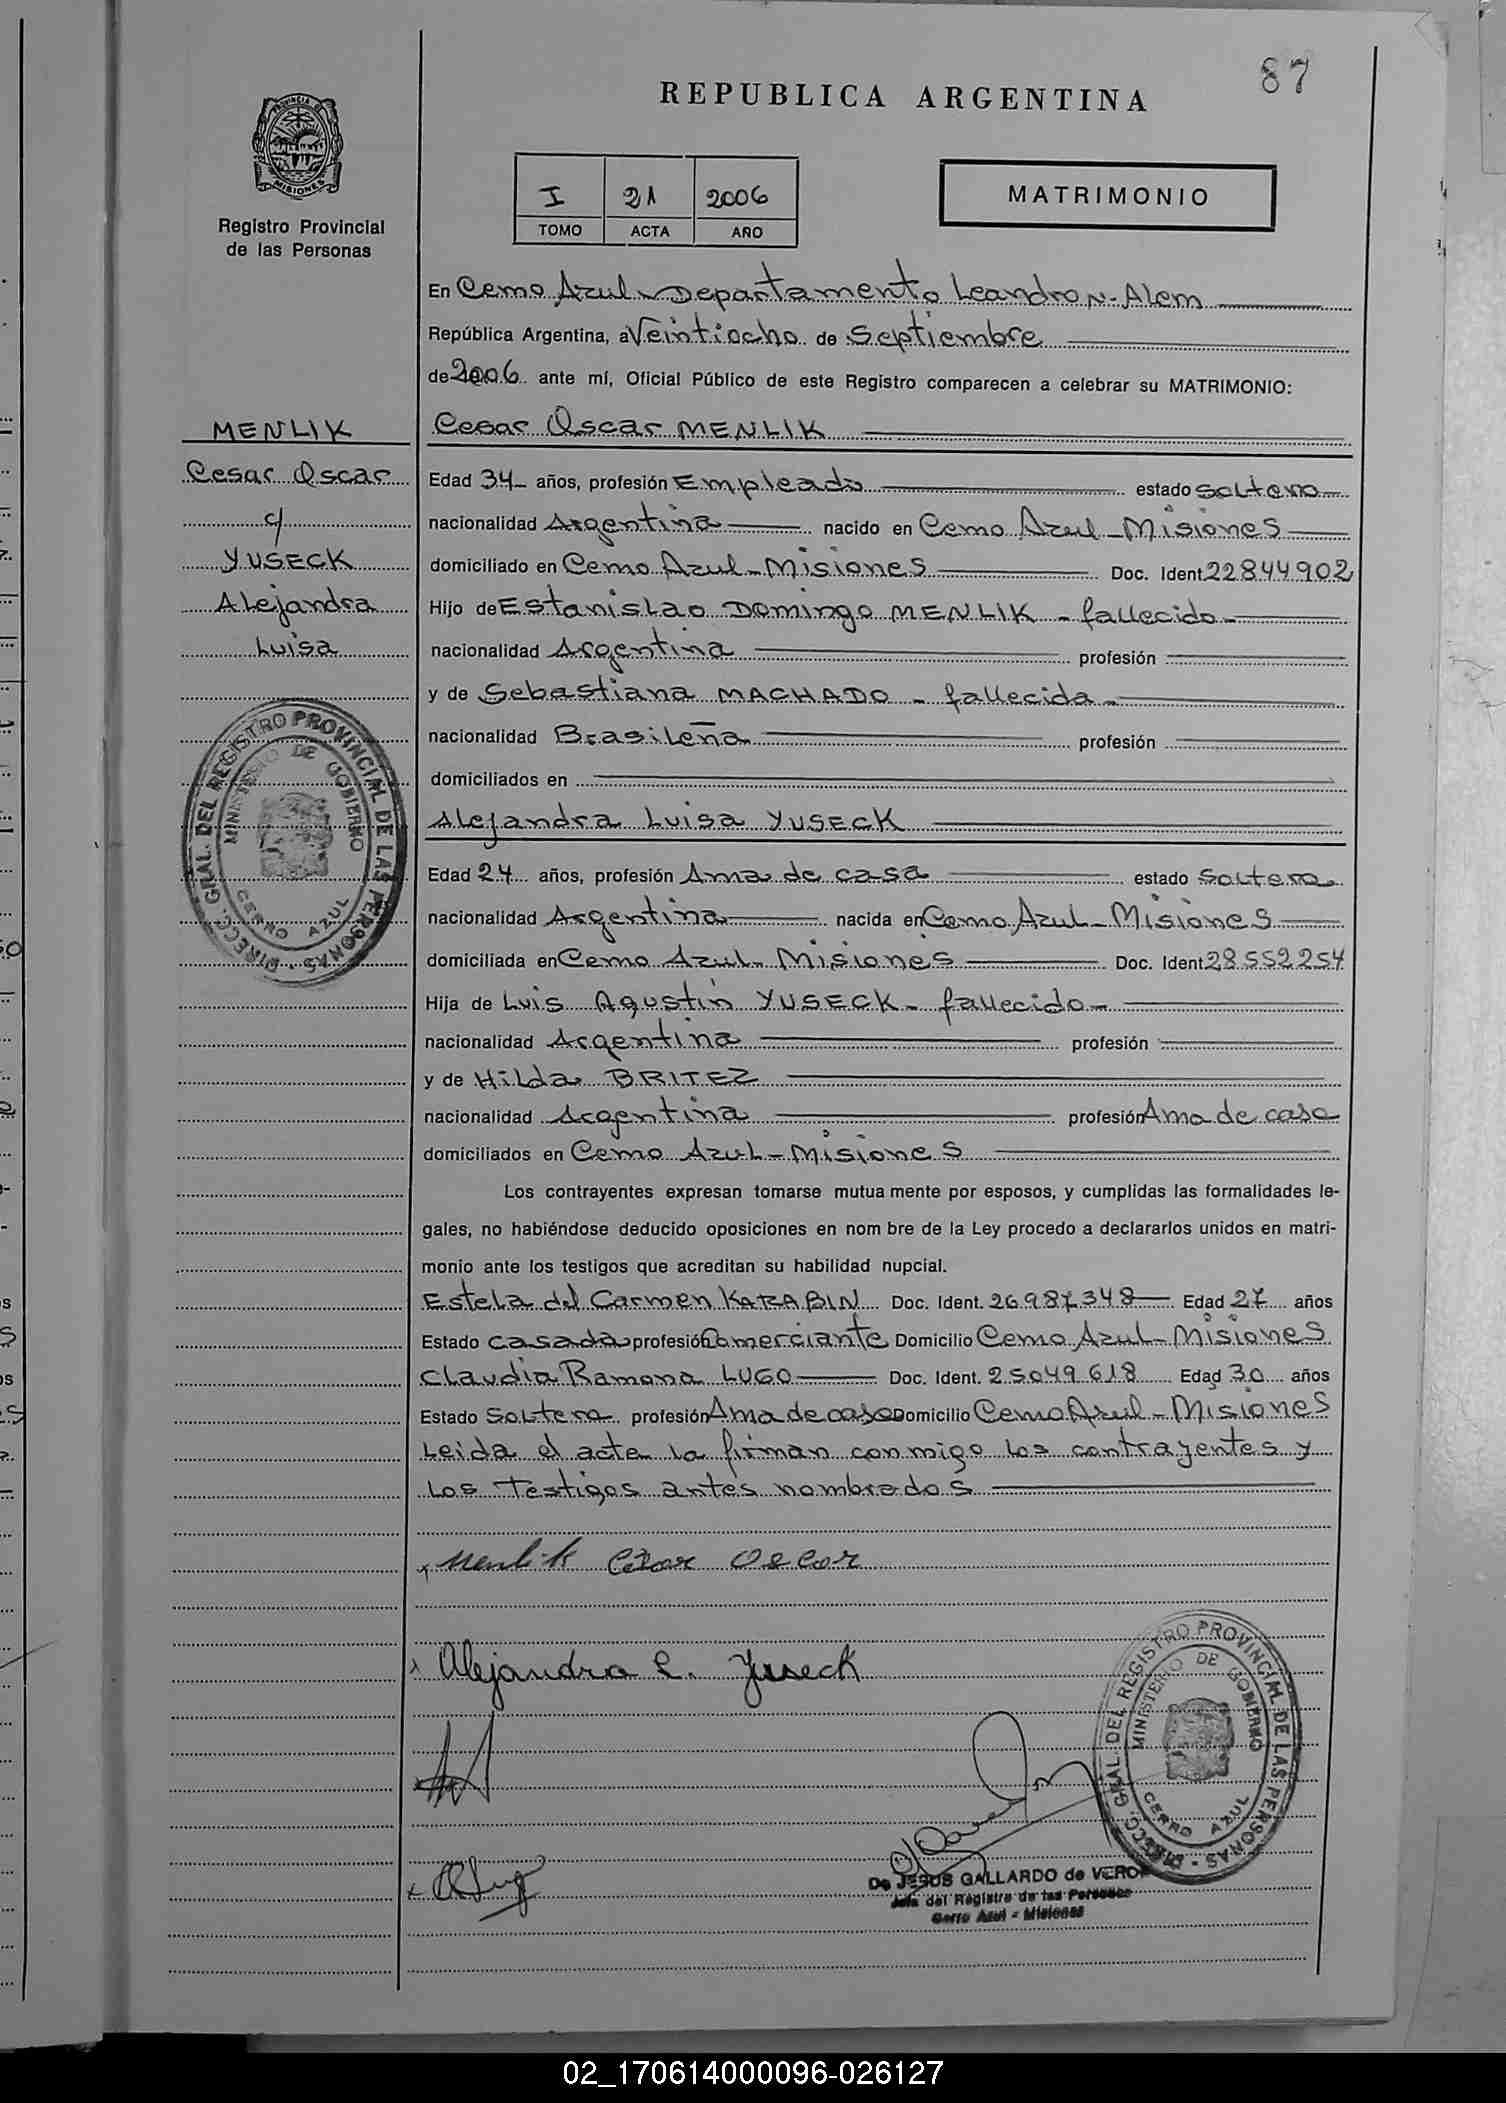 87
REPUBLICA ARGENTINA
PROVINCIA DE MISIONES
Registro Provincial
de las Personas
I 21 2006
TOMO ACTA AÑO
MATRIMONIO
En Cerro Azul - Departamento Leandro N. Alem
República Argentina, a Veintiocho de Septiembre
de 2006 ante mí, Oficial Público de este Registro comparecen a celebrar su MATRIMONIO:
MENLIK
Cesar Oscar
c/
YUSECK
Alejandra
Luisa
Cesar Oscar MENLIK
Edad 34 años, profesión Empleado estado Soltero
nacionalidad Argentina nacido en Cerro Azul - Misiones
domiciliado en Cerro Azul - Misiones Doc. Ident 22844902
Hijo de Estanislao Domingo MENLIK - fallecido -
nacionalidad Argentina profesión
y de Sebastiana MACHADO - fallecida -
nacionalidad Brasileña profesión
domiciliados en
Alejandra Luisa YUSECK
Edad 24 años, profesión Ama de casa estado Soltera
nacionalidad Argentina nacida en Cerro Azul - Misiones
domiciliada en Cerro Azul - Misiones Doc. Ident 28552254
Hija de Luis Agustín YUSECK - fallecido -
nacionalidad Argentina profesión
y de Hilda BRITEZ
nacionalidad Argentina profesión Ama de casa
domiciliados en Cerro Azul - Misiones
Los contrayentes expresan tomarse mutua mente por esposos, y cumplidas las formalidades le-
gales, no habiéndose deducido oposiciones en nom bre de la Ley procedo a declararlos unidos en matri-
monio ante los testigos que acreditan su habilidad nupcial.
Estela del Carmen KARABIN Doc. Ident. 26987348 Edad 27 años
Estado casada profesión Comerciante Domicilio Cerro Azul - Misiones
Claudia Ramona LUGO Doc. Ident. 25049618 Edad 30 años
Estado Soltera profesión Ama de casa Domicilio Cerro Azul - Misiones
Leida el acta la firman conmigo los contrayentes y
los testigos antes nombrados
Menlik Cesar Oscar
Alejandra L. Yuseck
DIRECC. GRAL. DEL REGISTRO PROVINCIAL DE LAS PERSONAS
MINISTERIO DE GOBIERNO
CERRO AZUL
DIRECC. GRAL. DEL REGISTRO PROVINCIAL DE LAS PERSONAS
MINISTERIO DE GOBIERNO
CERRO AZUL
De JESUS GALLARDO de VERO
Jefa del Registro de las Personas
Cerro Azul - Misiones
02_170614000096-026127